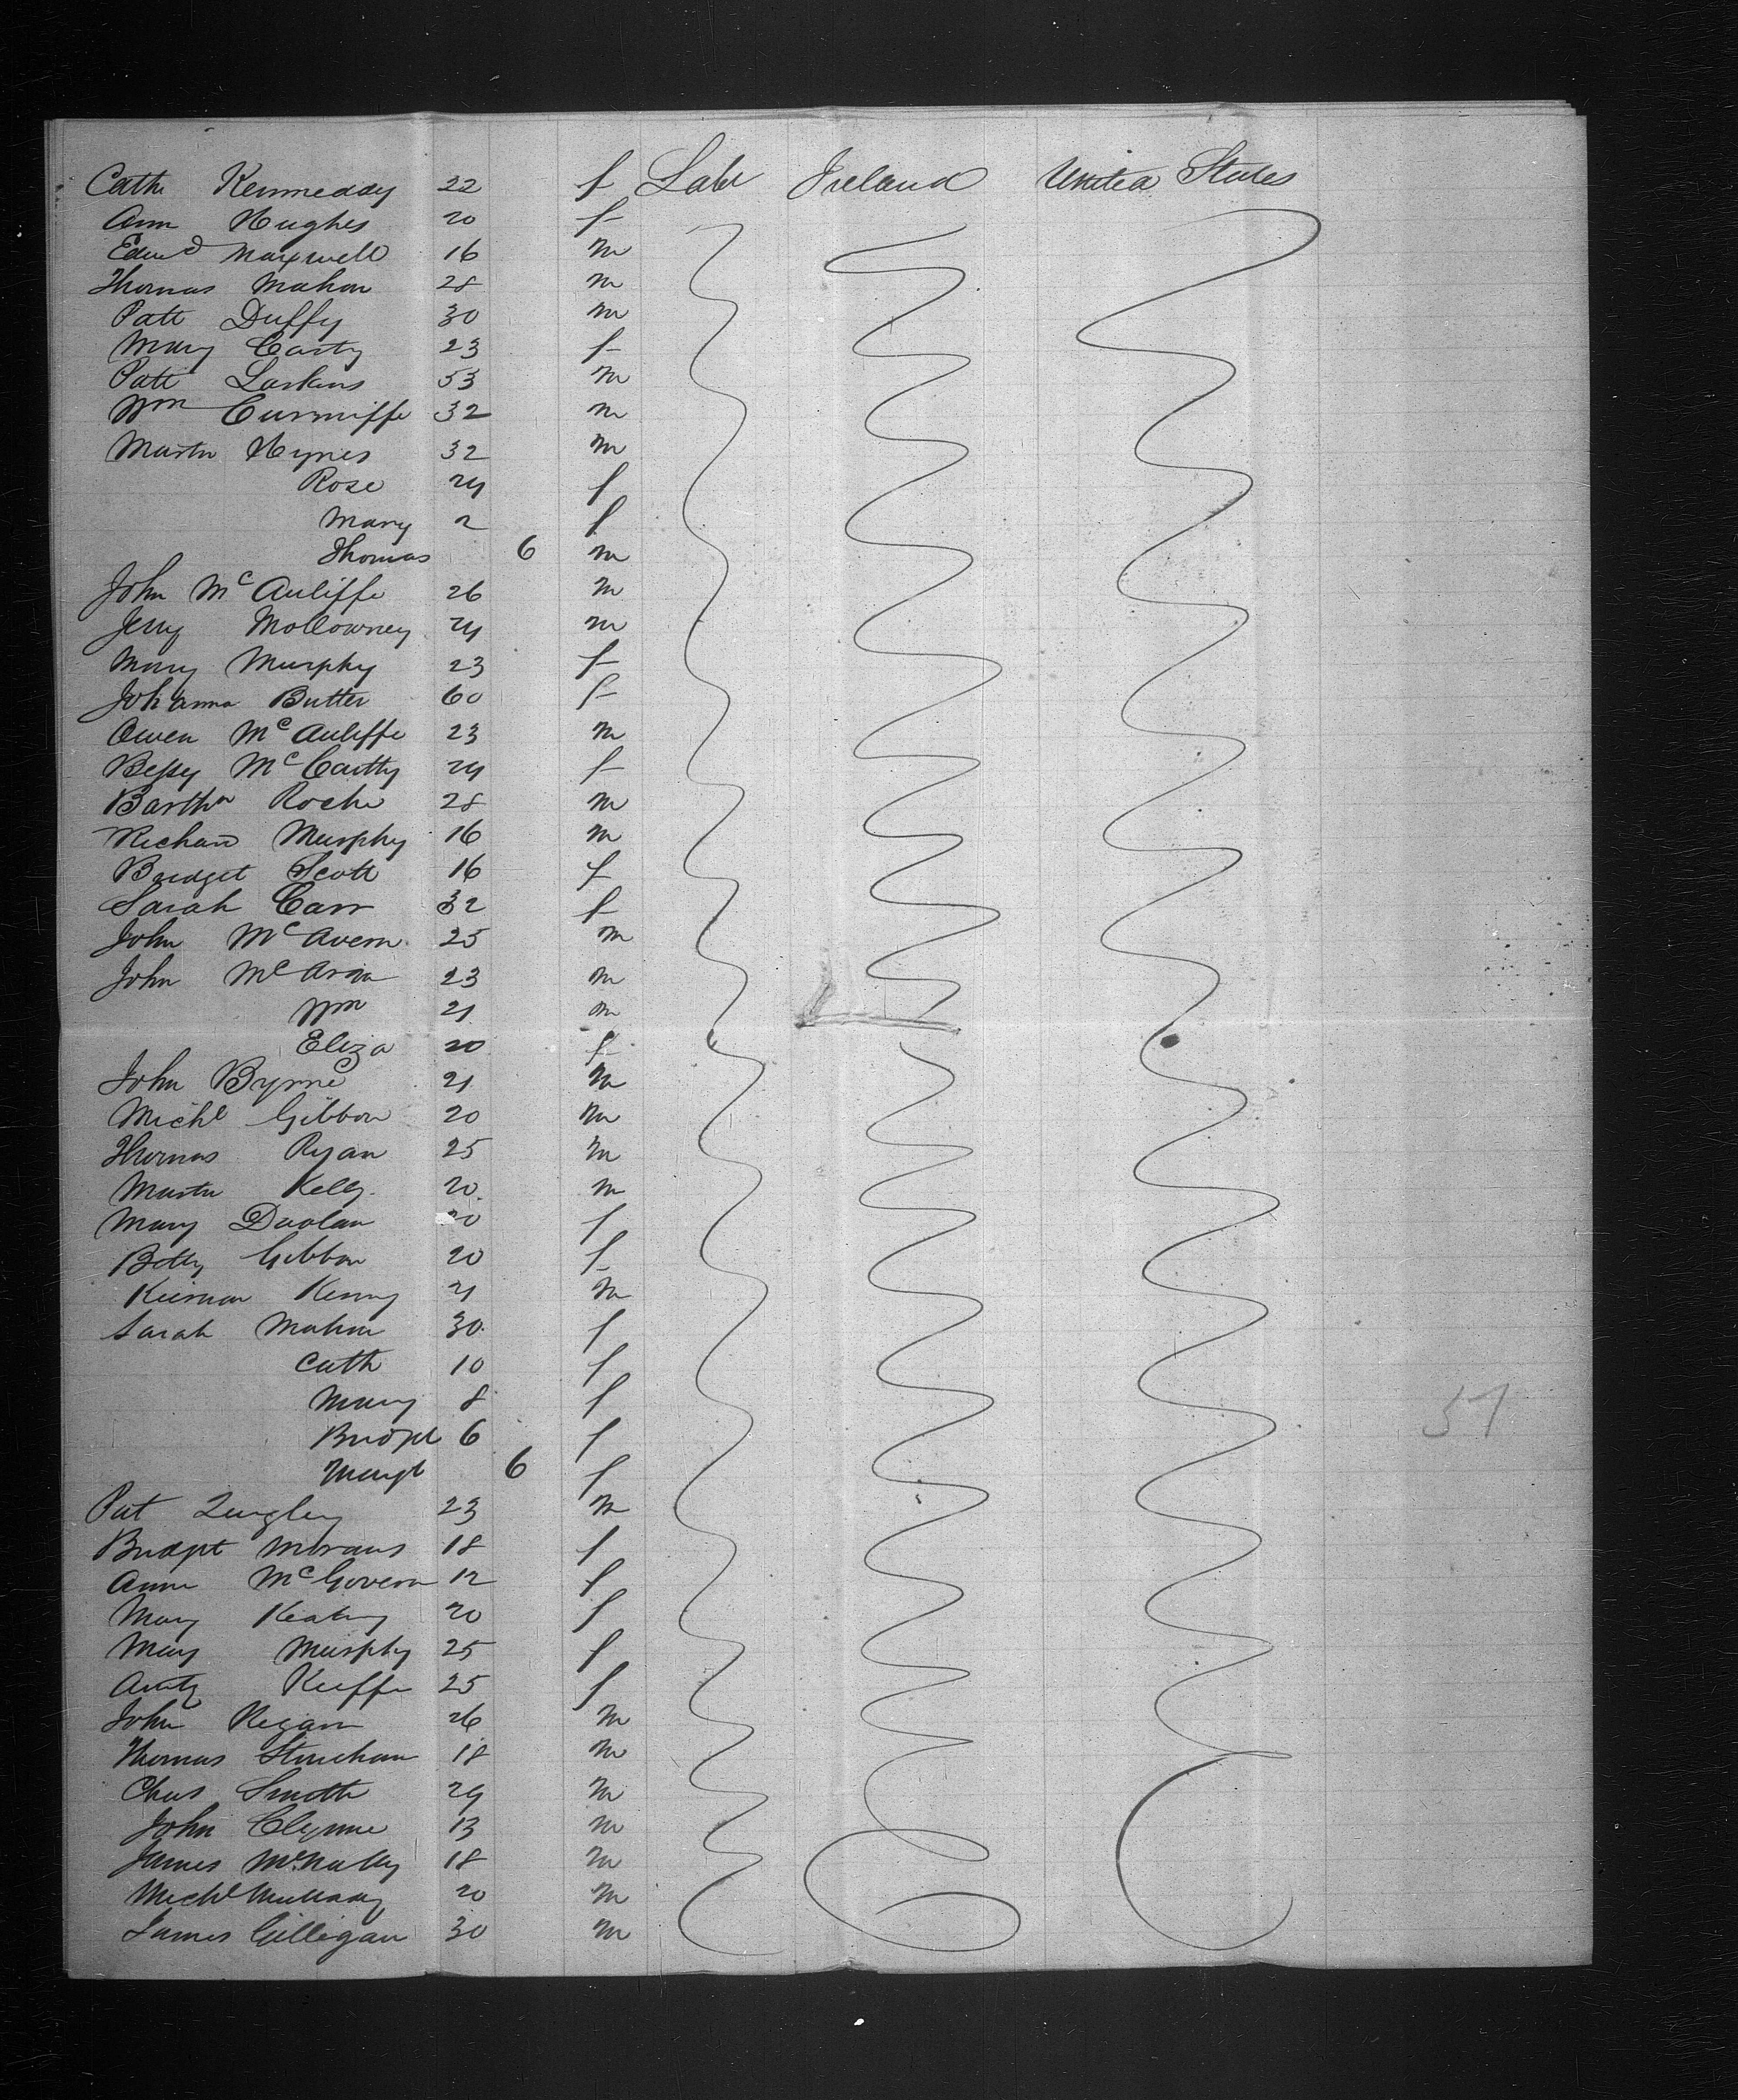 Cath Kennneddy 22 f Labr Ireland United States
Ann Hughes 20 f
Edwd Maxwell 16 m
Thomas Mahon 28 m
Patt Duffy 30 m
Mary Carty 23 f
Patt Larkins 53 m
Wm Cunniffe 32 m
Martn Hynes 32 m
Rose 24 f
Mary 2 f
Thomas 6 m
John McAuliffe 26 m
Jerry Mollowney 24 m
Mary Murphy 23 f
Johanna Butter 60 f
Owen McAuliffe 23 m
Bessy McCartty 24 f
Barthw Roche 28 m
Richard Murphy 16 m
Bridget Scott 16 f
Sarah Carr 32 f
John McAvern 25 m
John 23 m
Wm 21 m
Eliza 20 f
John Byrne 21 m
Michl Gibbon 20 m
Thomas Ryan 25 m
Martn Kelly 20 m
Mary Doolan 20 f
Betty Gibbon 20 f
Kiernan Kenny 21 m
Sarah Mahon 30 f
Cath 10 f
Mary 8 f
Bridgt 6 f
Margt 6 f
Pat 23 m
Bridgt Morans 18 f
Anne McGovern 12 f
Mary Keating 20 f
Mary Murphy 25 f
Keiffe 25 f
John Regan 26 m
Thomas 18 m
Chas Smith 29 m
John Clynne 13 m
James McNally 18 m
Michl 20 m
James Gilligan 30 m
51